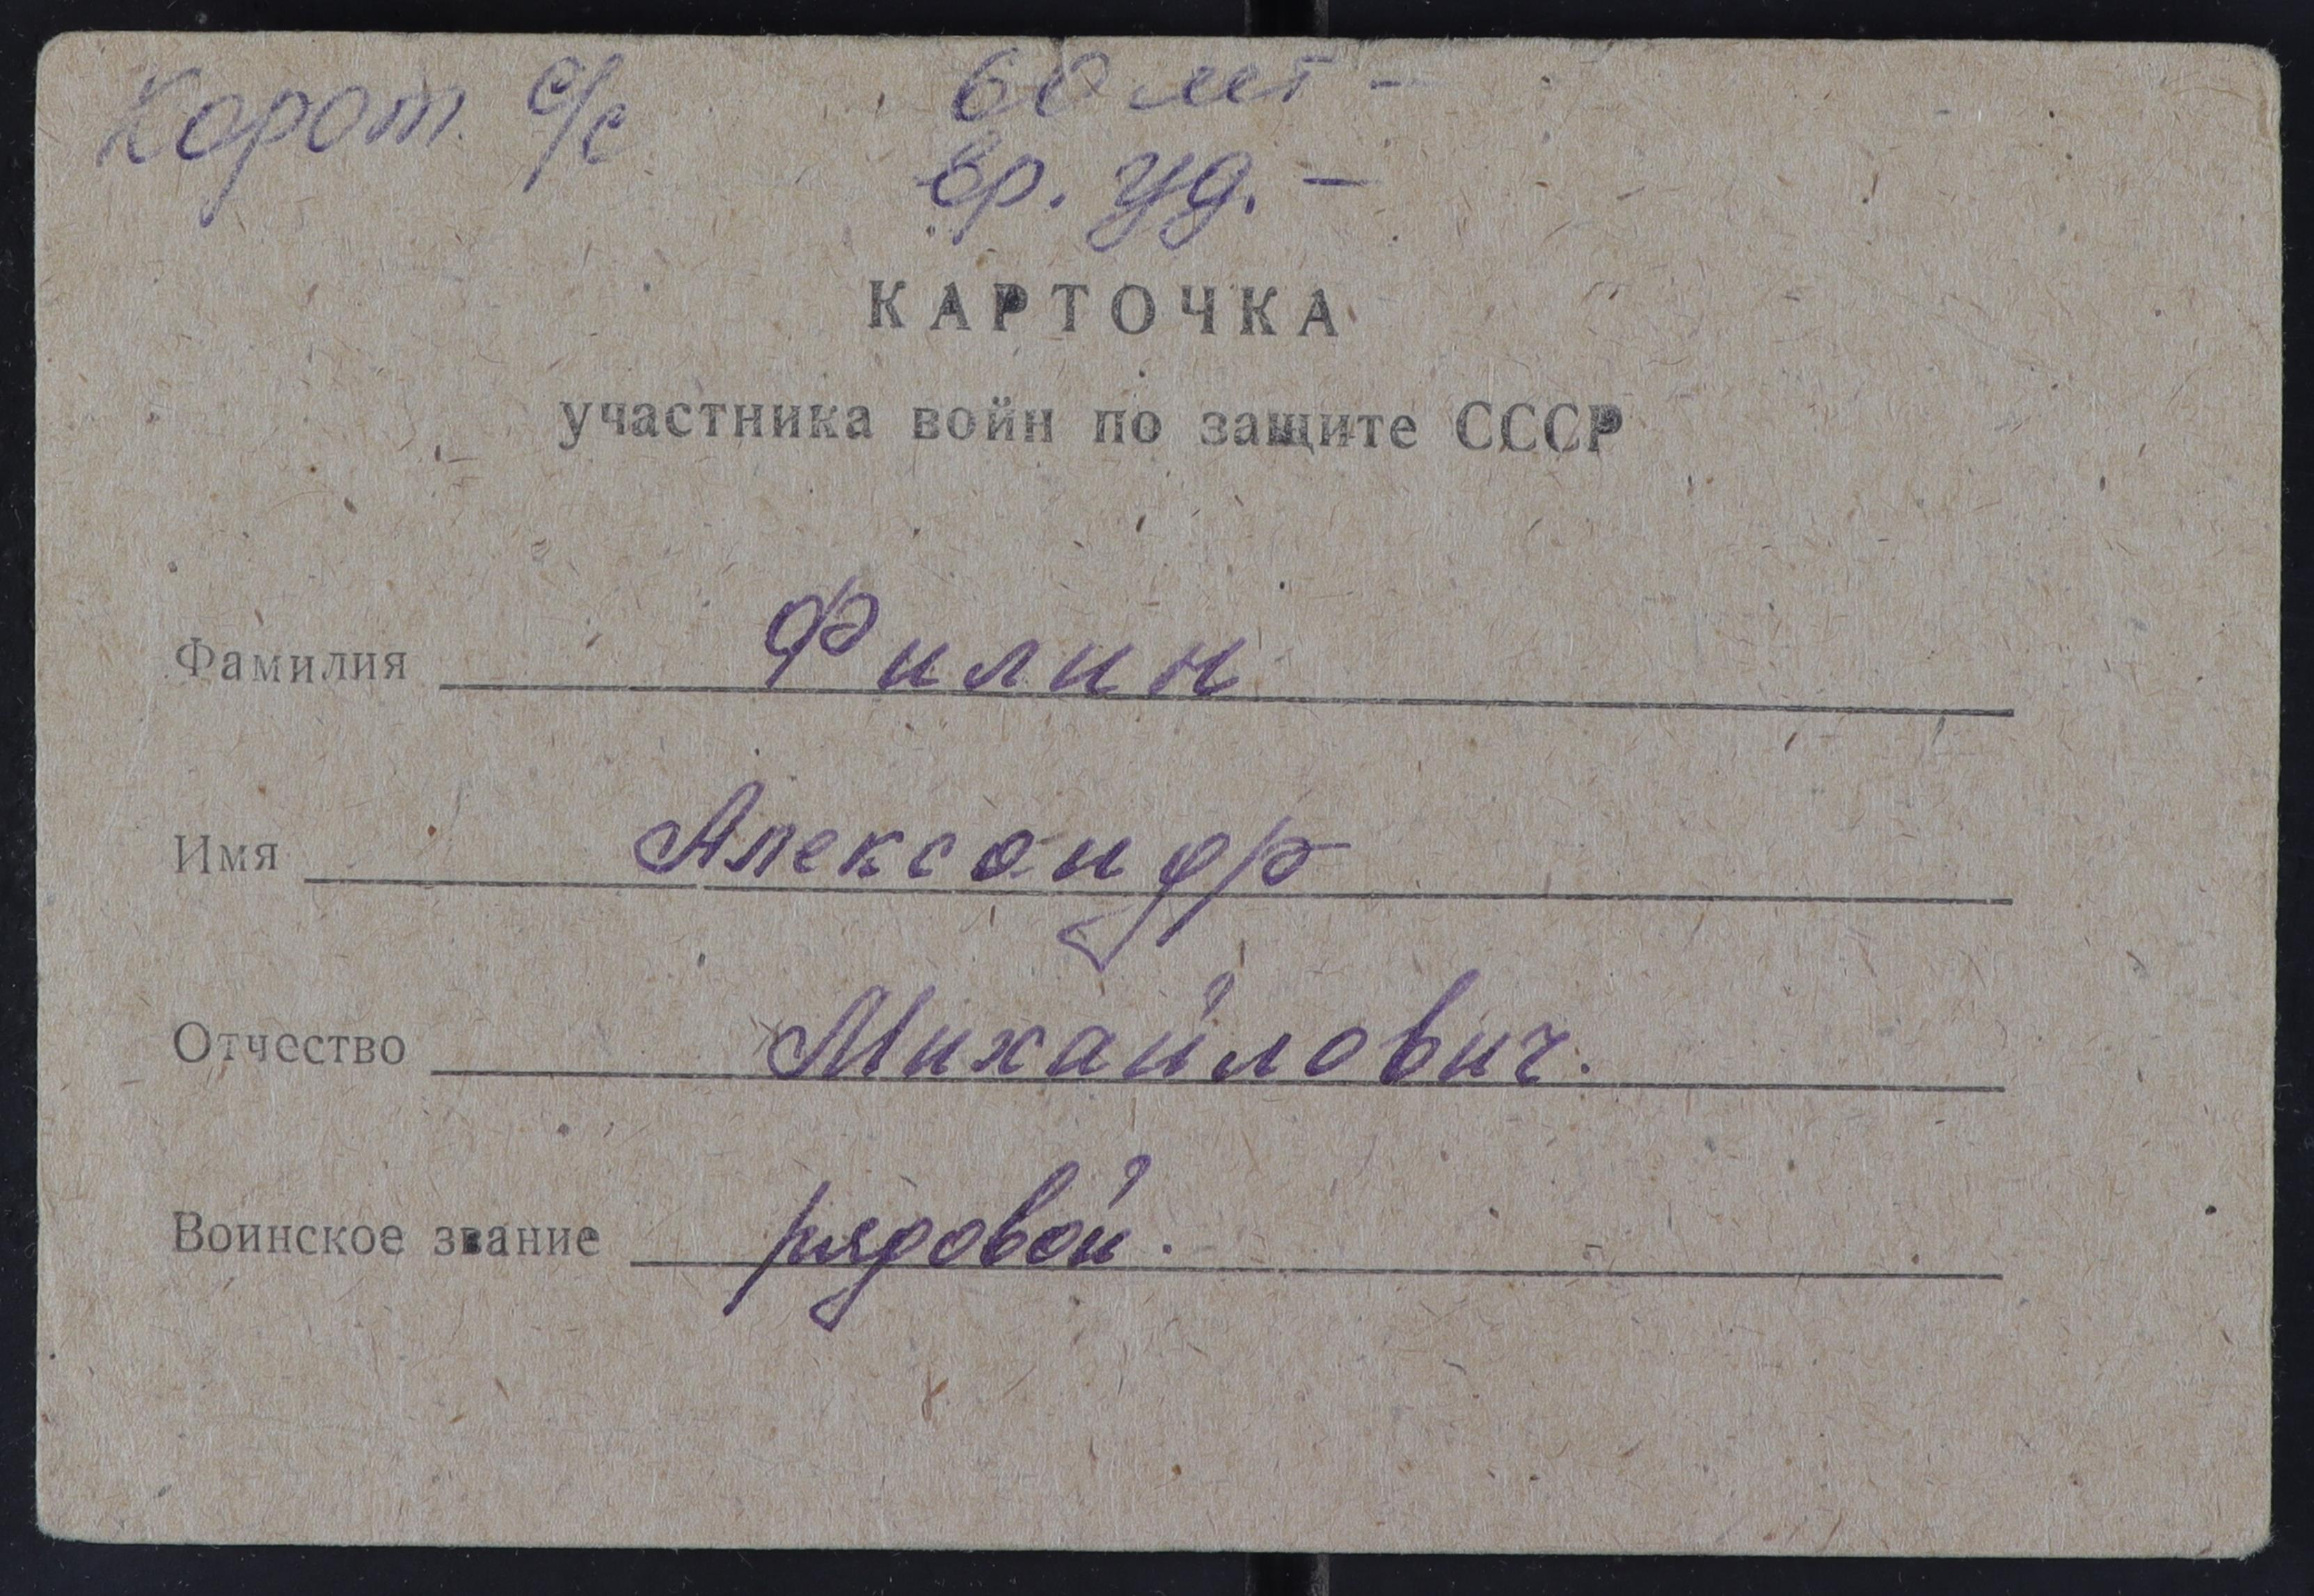 Корот. с/с
60 лет -
вр. уд. -
КАРТОЧКА
участника войн по защите СССР
Фамилия Филин
Имя Александр
Отчество Михайлович.
Воинское звание рядовой.